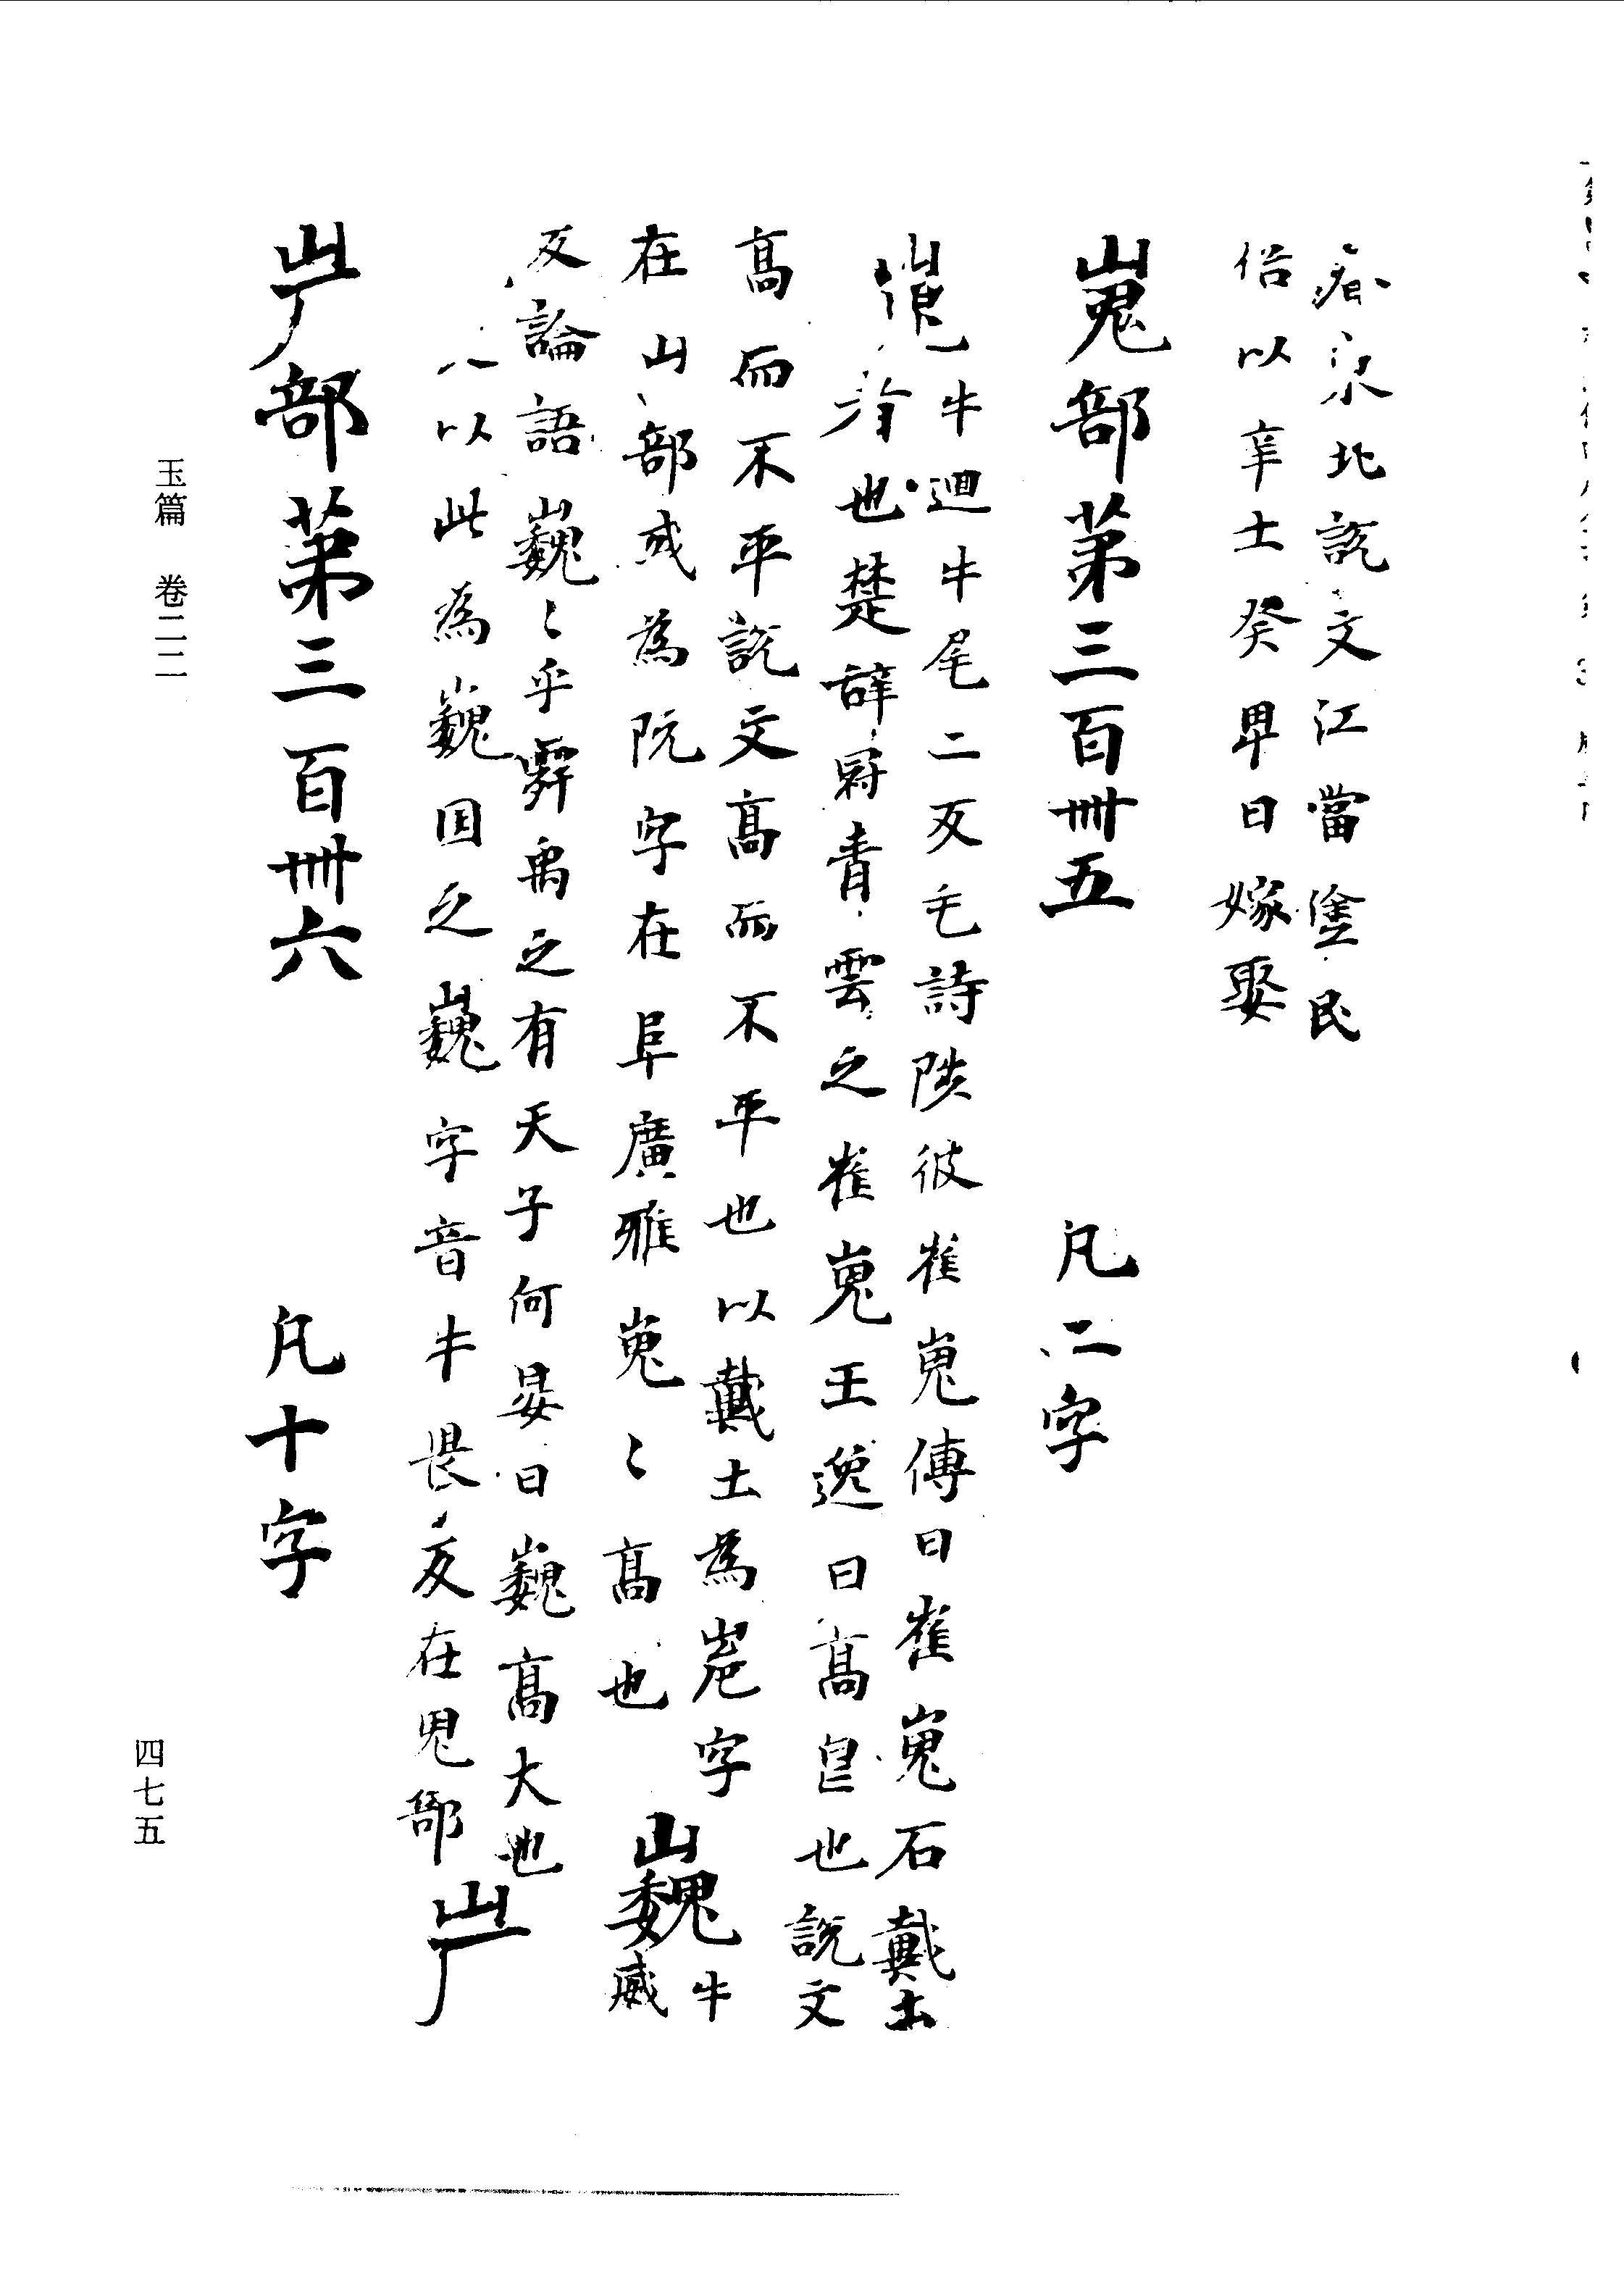 北說文江當塗民
俗以辛壬癸甲日嫁娶
嵬部第三百卌五　凡二字
牛迴牛尾二反毛詩陟彼崔嵬傳曰崔嵬石戴土
也楚辭冠青雲之崔嵬王逸曰高皃也說文
高而不平說文高而不平也以戴土為字
在山部或為阮字在阜廣雅嵬〻高也
巍牛威
反論語巍〻乎舜禹之有天子何晏曰巍高大也
以此為巍国之巍字音牛畏反在嵬部
屵
屵部第三百卌六　凡十字
玉篇　卷二二
四七五